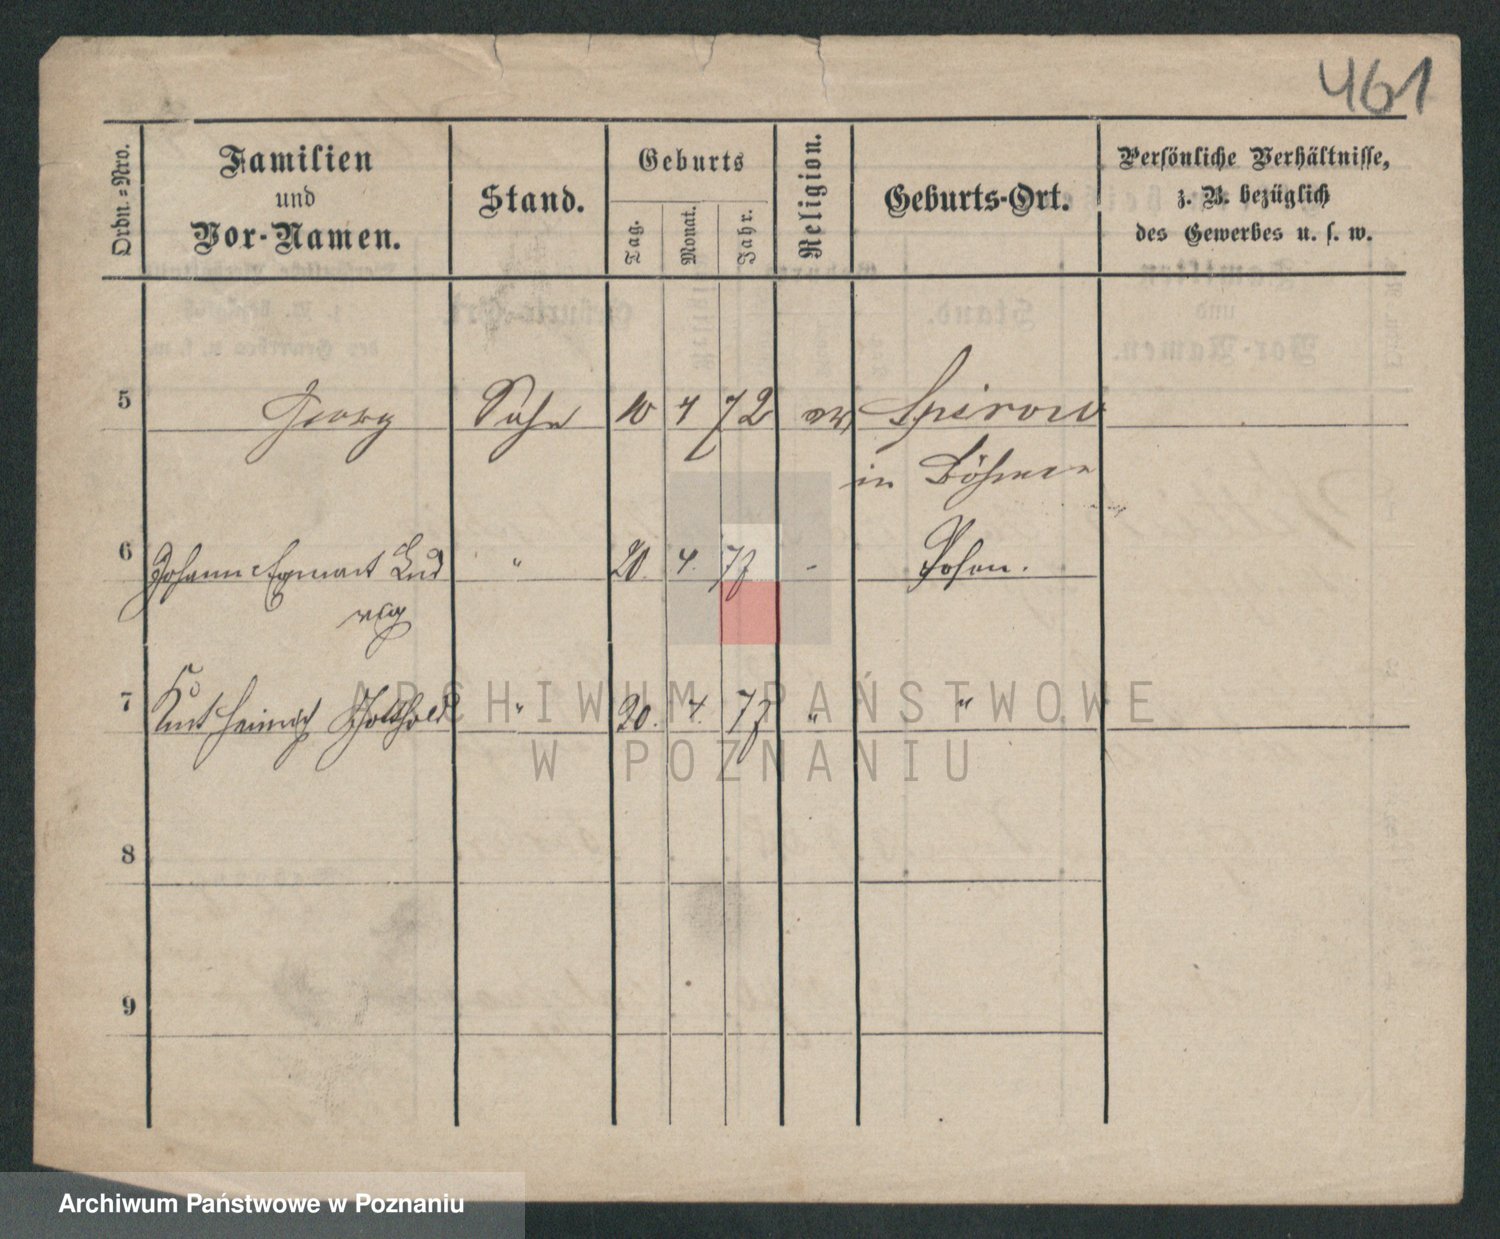 461
Ordn.-Nro.
Familien
und
Vor-Namen.
Stand.
Geburts
Tag.
Monat.
Jahr.
Religion.
Geburts-Ort.
Persönliche Verhältnisse,
z. B. bezüglich
des Gewerbes u. s. w.
5 Georg Sohn 10 4 72 ev
in Böhmen
6 Johann Lud " 20. 4. 77 - Posen.
wig
7 Kurt Heinrich Gotthold " 20. 4. 77 " "
8
9
ARCHIWUM PAŃSTWOWE
W POZNANIU
Archiwum Państwowe w Poznaniu